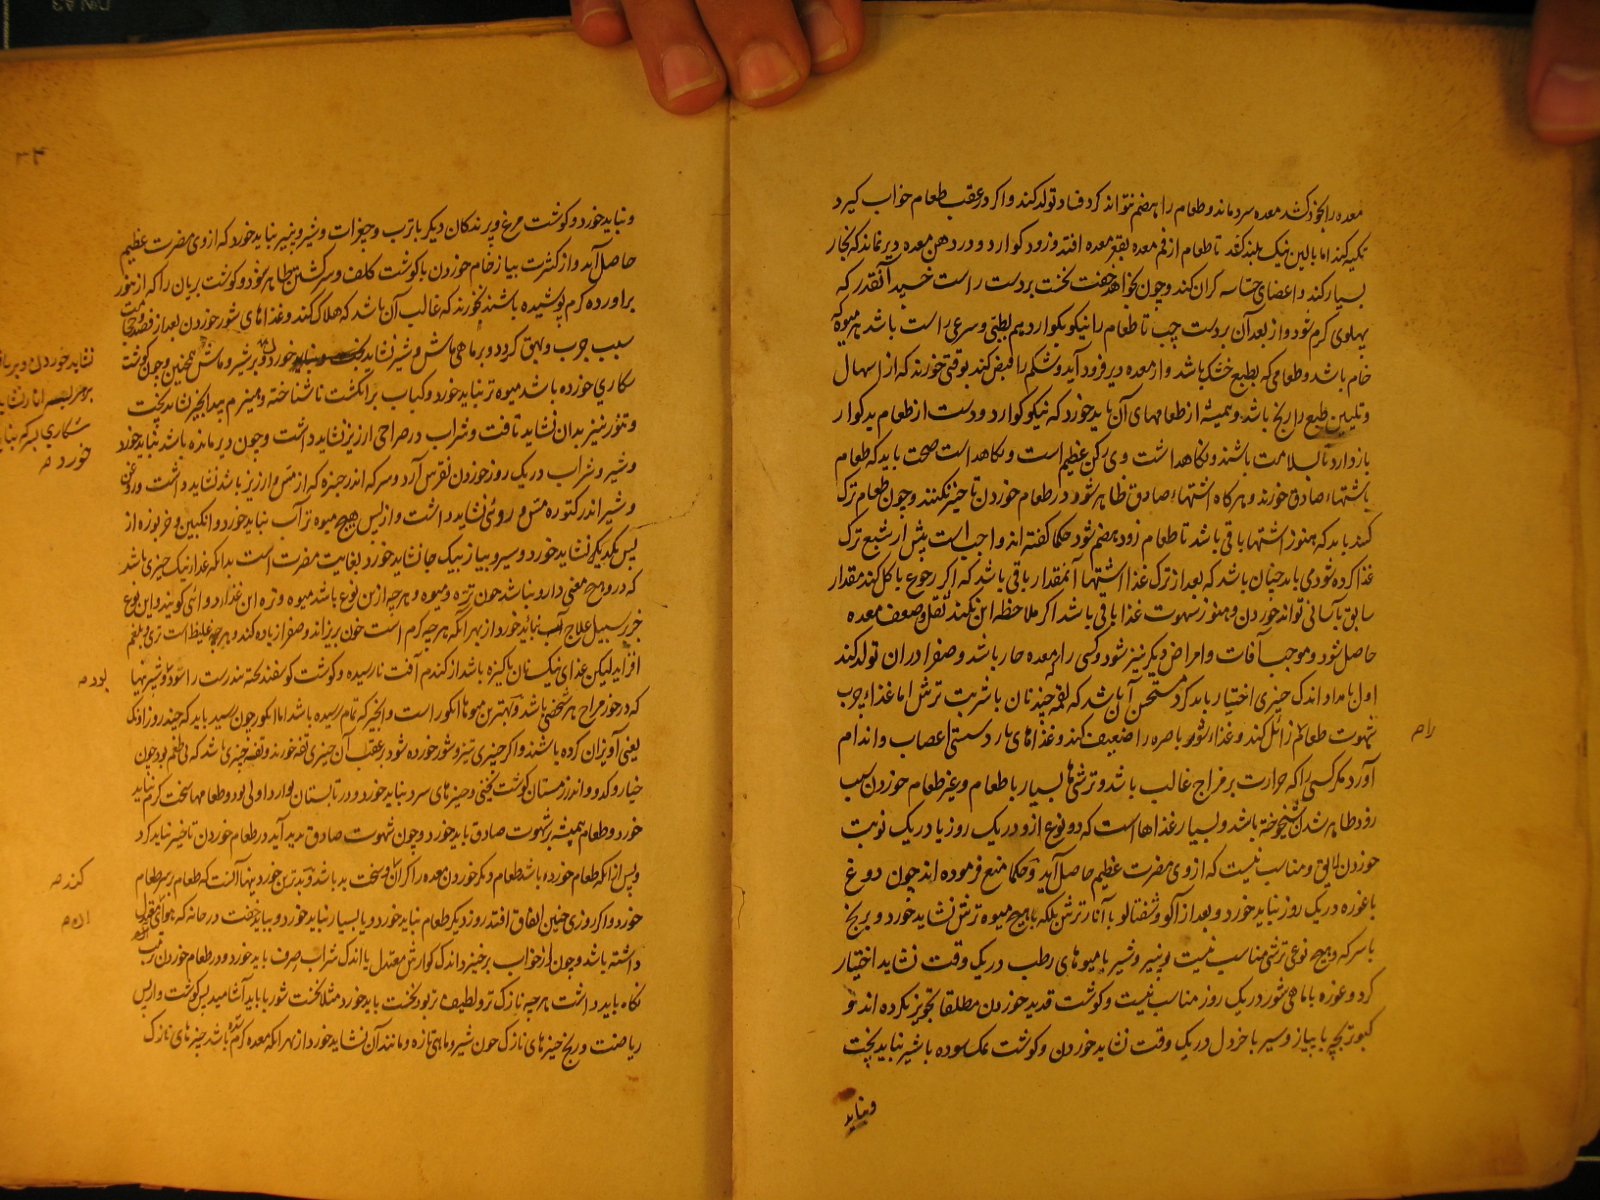 معده را بخود کشد معده سرد ماند و طعام را هضم نتواند کرد فساد تولد کند و اکر در عقب طعام خواب کیرد
تکیه کند اما بالین نیک بلند کند تا طعام از فم معده بقعر معده افتد و زود کوارد و در دهن معده دیر نماند که بخار
بسیار کند و اعضای حساسه کران کند و چون بخواهد خفت نخست بر دست راست خسبد آنقدر که
پهلوی کرم شود و از بعد آن بر دست چپ تا طعام را نیکو بکوارد هم بطبی و سرعی راست باشد هر میوه که
خام باشد و طعامی که بطبع خشک باشد و از معده دیر فرود آید و شکم را قبض کند بوقتی خورند که از اسهال
و تلیین طبع را رنج باشد و همیشه از طعامهای آن باید خورد که نیکو کوارد و دست از طعام بد کوار
باز دارد تا بسلامت باشند و نکاهداشت وی رکن عظیم است و نکاهداشت صحت باید که طعام
باشتهاء صادق خورند و هرکاه اشتهاء صادق ظاهر شود در طعام خوردن تاخیر نکنند و چون طعام ترک
کنند باید که هنوز اشتها باقی باشد تا طعام زود هضم شود حکما کفته اند واجب است پیش از شبع ترک
غذا کرده شود می باید چنان باشد که بعد از ترک غذا اشتها آنمقدار باقی باشد که اکر رجوع باکل کند مقدار
سابق بآسانی تواند خوردن و هنوز شهوت غذا باقی باشد اکر ملاحظه این نکند ثقل و ضعف معده
حاصل شود و موجب آفات و امراض دیکر نیز شود و کسی را که معده حار باشد و صفرا در ان تولد کند
اول بامداد اندک چیزی اختیار باید کرد مستحسن آن باشد که لقمه چند نان با شربت ترش اما غذاء چرب
شهوت طعام زائل کند و غذاء شور باصره را ضعیف کند و غذاهای بارد سستی اعصاب و اندام
آورد مکر کسی را که حرارت بر مزاج غالب باشد و ترشیها بسیار با طعام و غیر طعام خوردن سبب
زود ظاهر شدن شیخوخة باشد و بسیار غذاها است که دو نوع ازو در یک روز یا در یک نوبت
خوردن لایق و مناسب نیست که از وی مضرت عظیم حاصل آید و حکما منع فرموده اند چون دوغ
با غوره در یک روز نباید خورد و بعد از آلو و شفتالو با آنار ترش بلکه با هیچ میوه ترش نشاید خورد و برنج
با سرکه و هیچ نوعی ترشی مناسب نیست و پنیر و شیر با میوهای رطب در یک وقت نشاید اختیار
کرد و غوره با ماهی شور در یک روز مناسب نیست و کوشت قدید خوردن مطلقا تجویز نکرده اند و
کبوتر بچه با پیاز و سیر با خردل در یک وقت نشاید خوردن و کوشت نمک سوده با شیر نباید پخت
و نباید
رام
و نباید خورد و کوشت مرغ و پرندکان دیکر با ترب و جغرات و شیر و پنیر نباید خورد که از وی مضرت عظیم
حاصل آید و از کثرت پیاز خام خوردن با کوشت کلف و سرکشتن ظاهر شود و کوشت بریان را که از تنور
براورده کرم پوشیده باشند نخورند که غالب آن باشد که هلاک کند و غذاهای شور خوردن بعد از فصد و حجامت
سبب جرب و بهق کردد و بر ماهی ماش و شیر نشاید خورد و بر شیر و ماش همچنین و چون کوشت
شکاری خورده باشد میوه تر نباید خورد و کباب بر انکشت ناشناخته و هیزم بید انجیر نشاید پخت
و تنور نیز بدان نشاید تافت و شراب در صراحی ارزیز نشاید داشت و چون دیر مانده باشد نباید خورد
و شیر و شراب در یک روز خوردن نقرس آرد و سرکه اندر چیزه که از مس و ارزیز باشد نشاید داشت و روغن
و شیر اندر کتوره مس و روئی نشاید داشت و از پس هیچ میوه تر آب نباید خورد و انکبین و خربوزه از
پس یکدیکر نشاید خورد و سیر و پیاز بیک جا نشاید خورد بغایت مضرت است بدانکه غذا نیک چیزی باشد
که در وی هیچ معنی دارو نباشد چون تره و میوه و هر چه ازین نوع باشد میوه و تره این غذاء دوائی کویند و این نوع
جز بر سبیل علاج نباید خورد از بهر آنکه هر چه کرم است خون بریزاند و صفرا زیاده کند و هر چه غلیظ است تری و بلغم
افزاید لیکن غذای نیک نان پاکیزه باشد از کندم آفت نارسیده و کوشت کوسفند بحة تندرست را شود و شیرینها
که در خور مزاج هر شخصی باشد و بهترین میوها انکور است و انجیر که تمام رسیده باشد اما انکور چون رسید باید که چند روز اونک
یعنی آویزان کرده باشند و اکر چیزی تیز و شور خورده شود در عقب آن چیزی تفه خورند و تفه چیزی باشد که بی طعم بود چون
خیار و کدو و اندر زمستان کوشت یخنی و چیزهای سرد نباید خورد و در تابستان بوارد اولی بود و طعامها سخت کرم نباید
خورد و طعام همیشه بر شهوت صادق باید خورد و چون شهوت صادق پدید آید در طعام خوردن تاخیر نباید کرد
و پس از آنکه طعام خورده باشد طعام دیکر خوردن معده را کران و سخت بد باشد و بدترین خوردنیها آنست که طعام بر سر طعام
خورد و اکر روزی چنین اتفاق افتد روز دیکر طعام نباید خورد و یا بسیار نباید خورد و بباید خفت در خانه که هوائی
داشته باشد و چون که از خواب برخیزد اندک کوارش معتدل با اندک شراب صرف باید خورد و در طعام خوردن ترتیب
نکاه باید داشت هر چه نازک تر و لطیف تر بود نخست باید خورد مثلا نخست شوربا باید آشامید پس کوشت و از پس
ریاضت و رنج چیزهای نازک چون شیر و ماهی تازه و مانند آن نشاید خورد از بهر آنکه معده کرم شده باشد چیزهای نازک
نشاید خوردن و بر
شکاری سرکه
خورد
بود
کند